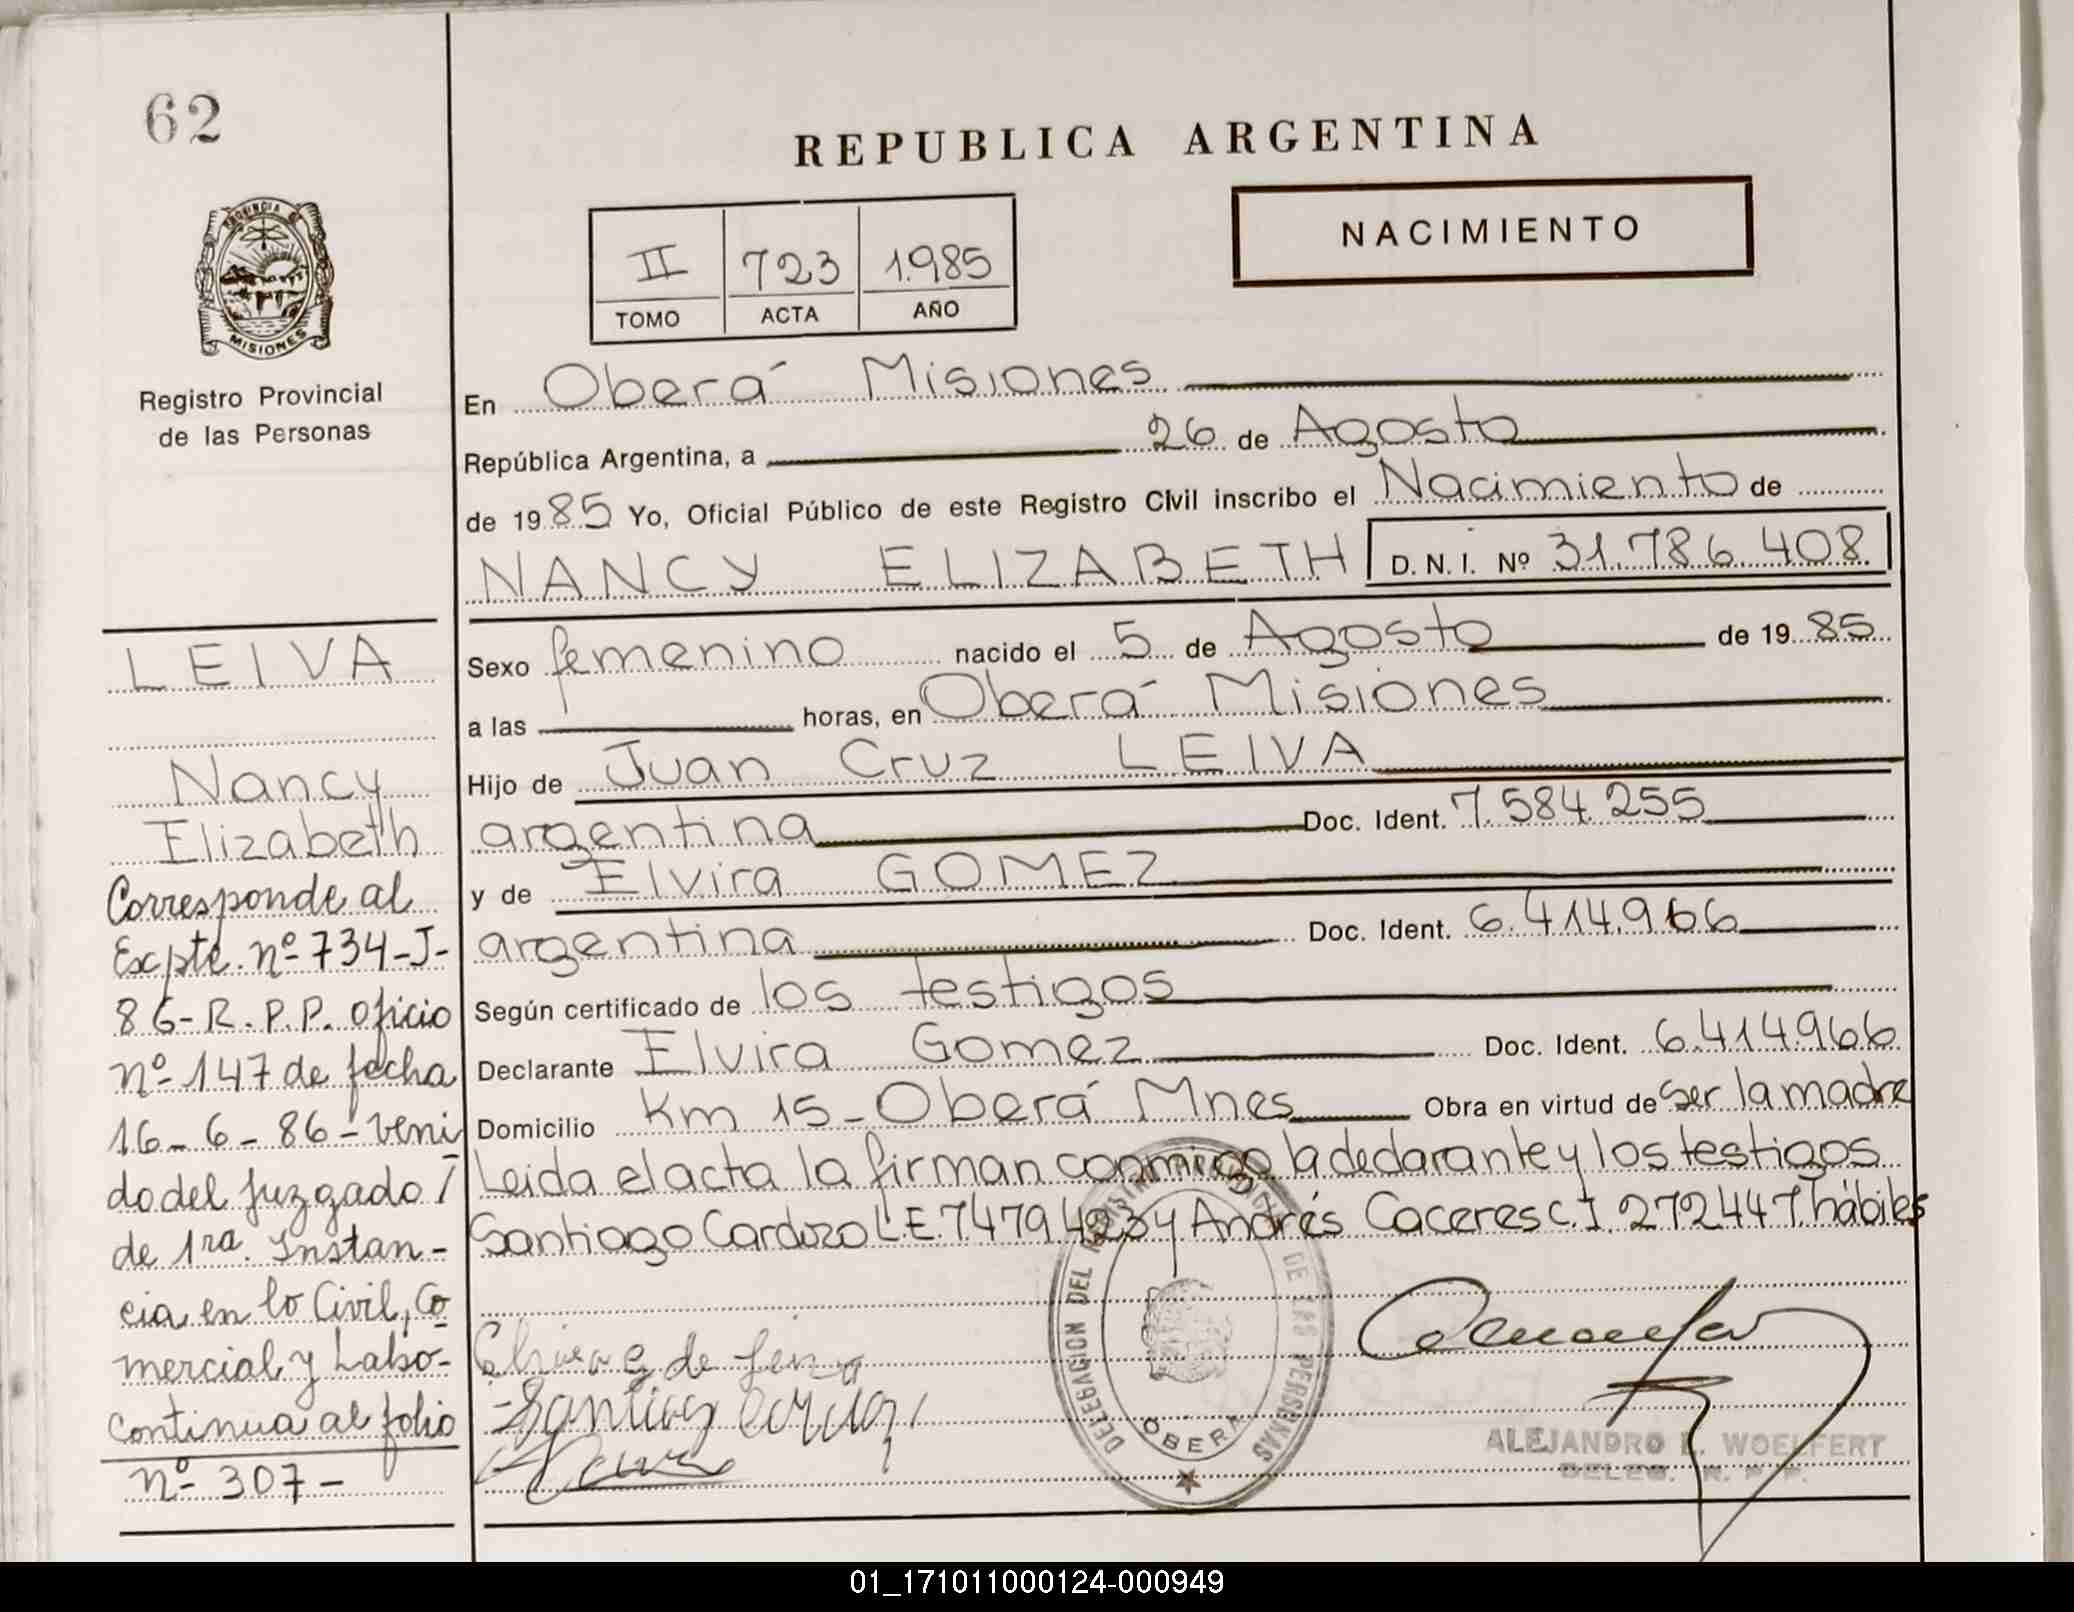 62
REPUBLICA ARGENTINA
NACIMIENTO
II 723 1.985
TOMO ACTA AÑO
PROVINCIA DE
MISIONES
Registro Provincial
de las Personas
En Oberá Misiones
República Argentina, a 26 de Agosto
de 1985 Yo, Oficial Público de este Registro Civil inscribo el Nacimiento de
NANCY ELIZABETH D. N. I. Nº 31.786.408
Sexo femenino nacido el 5 de Agosto de 1985
a las horas, en Oberá Misiones
Hijo de Juan Cruz LEIVA
argentina Doc. Ident. 7.584.255
y de Elvira GOMEZ
argentina Doc. Ident. 6.414.966
Según certificado de los testigos
Declarante Elvira Gomez Doc. Ident. 6.414.966
Domicilio Km 15-Oberá Mnes Obra en virtud de ser la madre
Leida el acta la firman conmigo la declarante y los testigos
Santiago Cardozo L.E. 7479423 y Andrés Caceres C.I. 272447 hábiles
LEIVA
Nancy
Elizabeth
Corresponde al
Expte. nº 734-J-
86-R.P.P. Oficio
nº 147 de fecha
16-6-86-veni
do del Juzgado I
de 1ra. Instan-
cia en lo Civil, Co
mercial y Labo-
continua al folio
nº 307-
DELEGACION DEL REGISTRO PROVINCIAL DE LAS PERSONAS
OBERA
ALEJANDRO WOELFERT
DELEG. R. P. P.
01_171011000124-000949